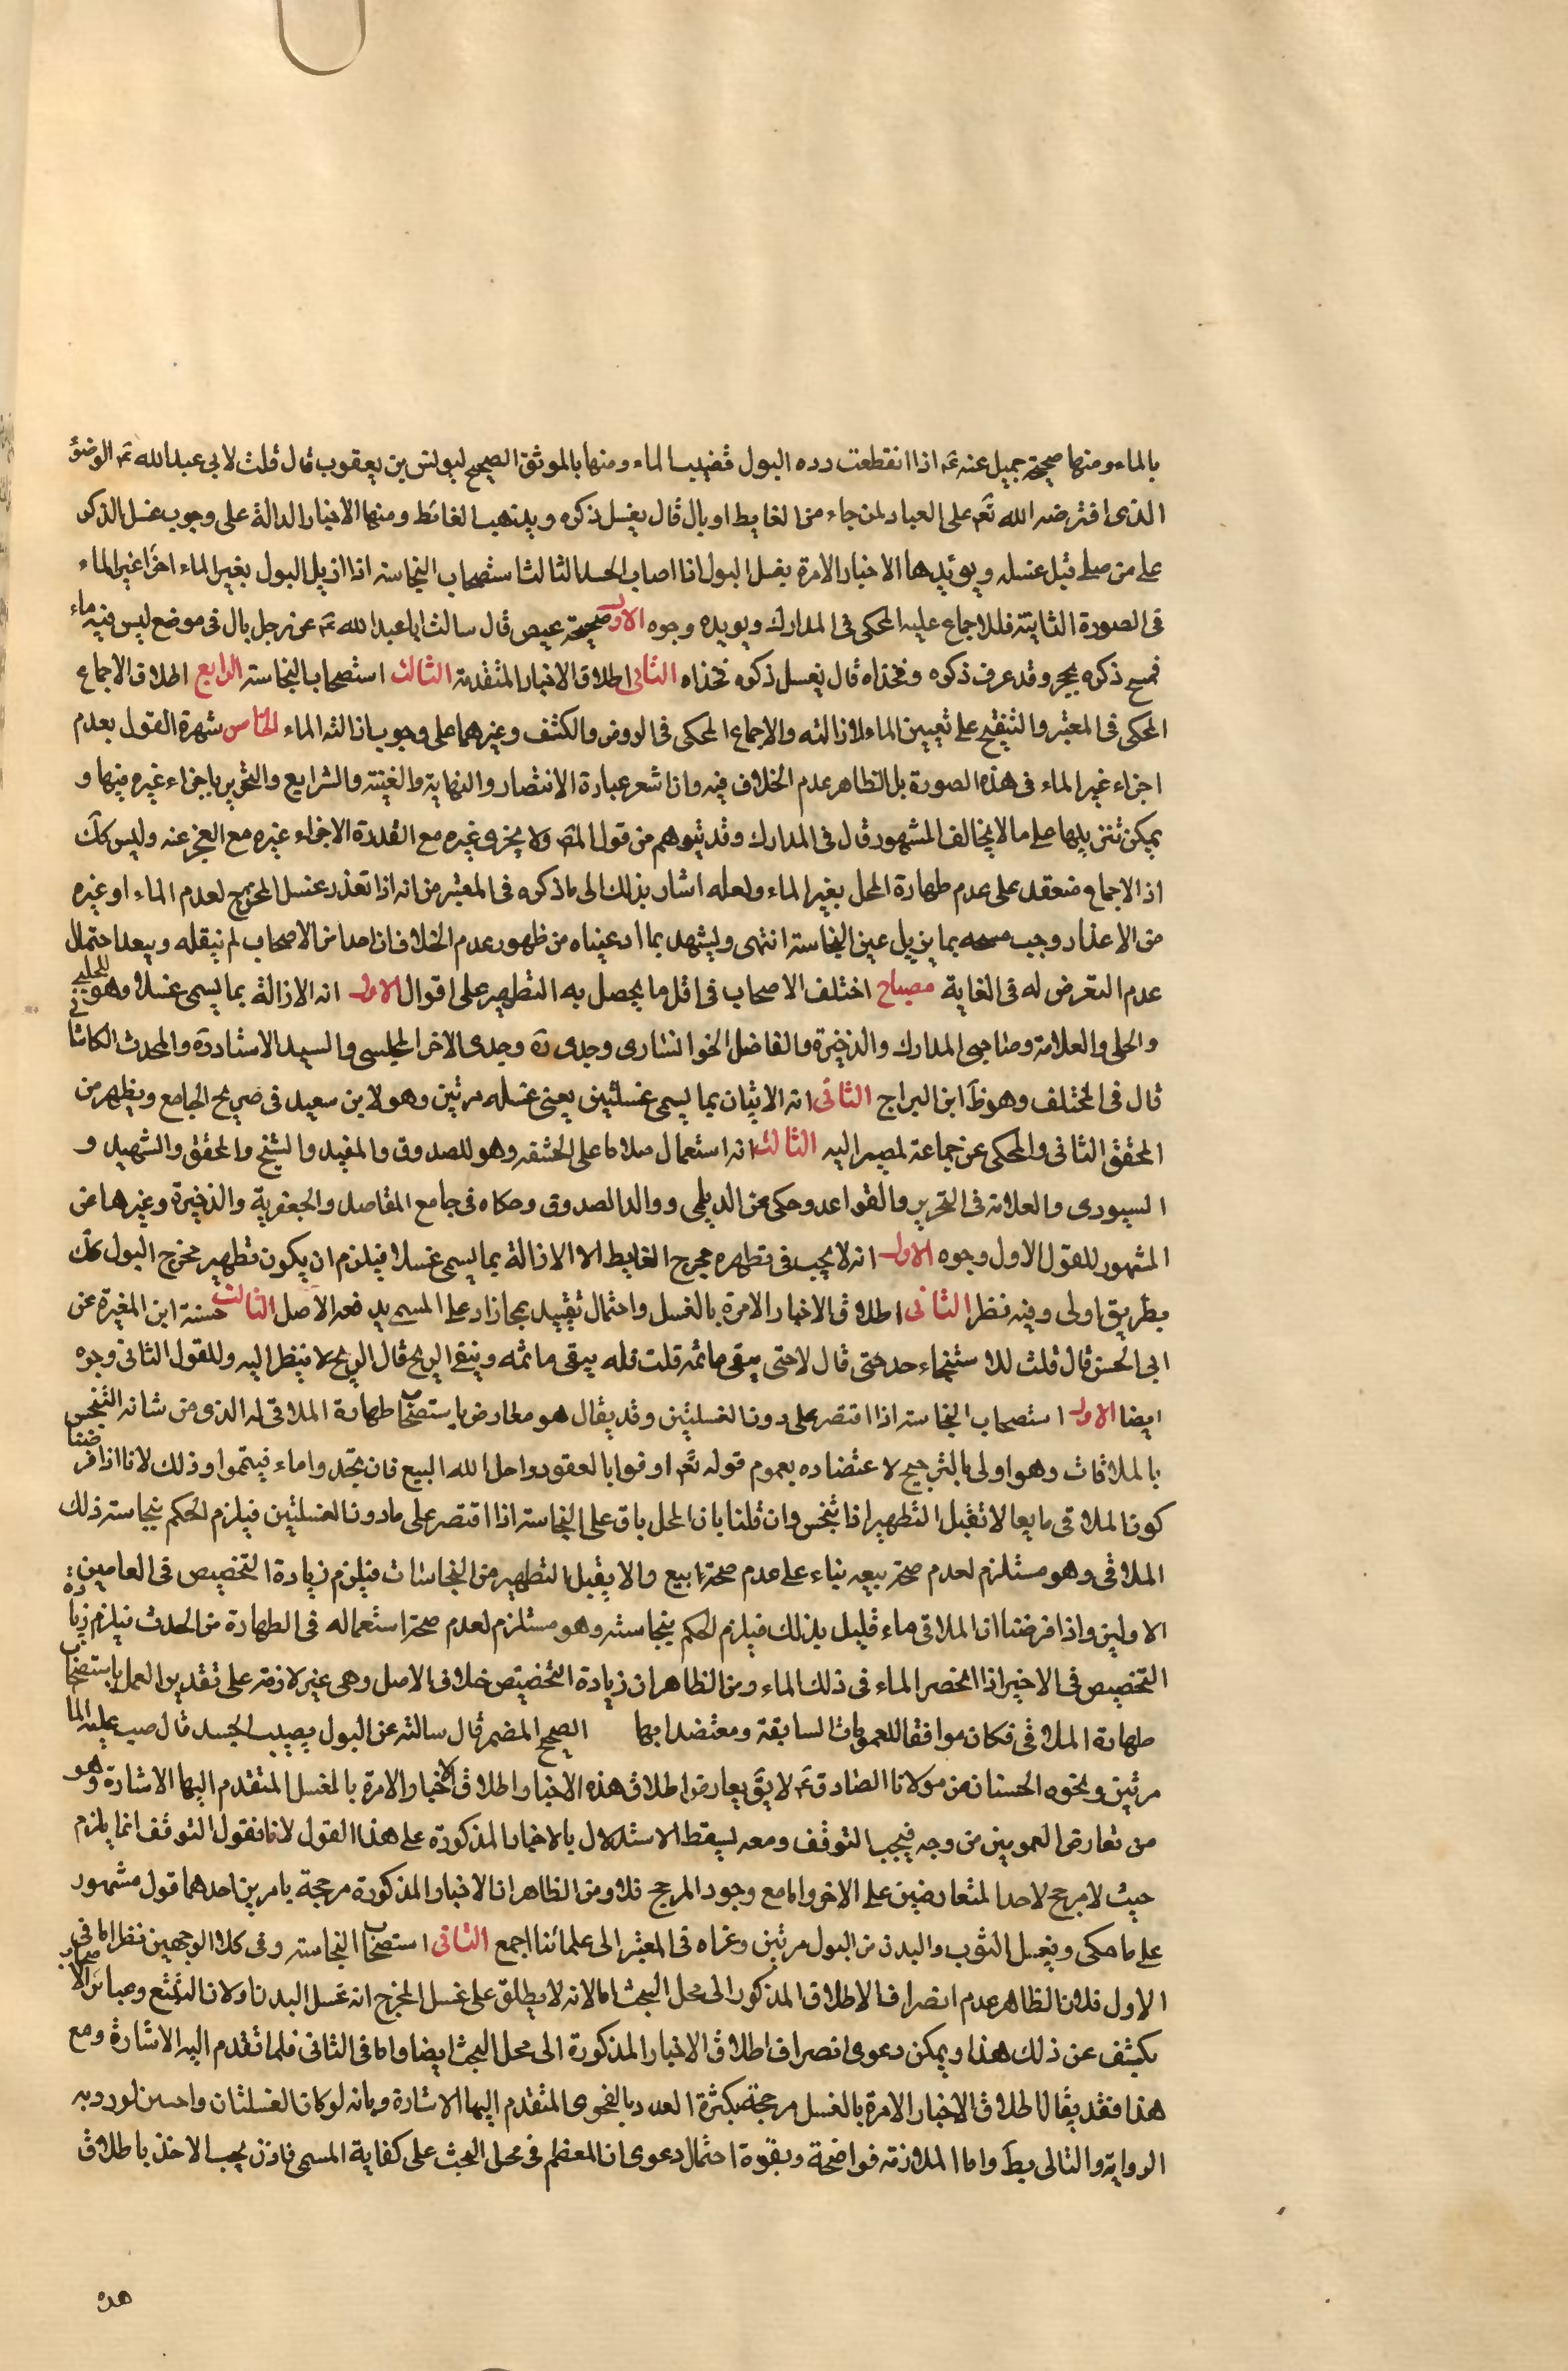 بالماء ومنها صحيحة جميل عنه ع‍ اذا انقطعت درة البول فصب الماء ومنها بالموثق الصحيح ليونس بن يعقوب قال قلت لابي عبد الله ع‍ الوضوء
الذى افترضه الله تعم على العباد لمن جاء من الغايط او بال قال يغسل ذكره ويذهب الغائط ومنها الاخبار الدالة على وجوب غسل الذكر
على من صلى قبل غسله ويويدها الاخبار الامرة بغسل البول اذا اصاب الجسد الثالث استصحاب النجاسة اذا ازيل البول بغير الماء اخرا غير الماء
فى الصورة الثانية فللاجماع عليه المحكى فى المدارك ويويده وجوه الاول صحيحة عيص قال سالت ابا عبد الله ع‍ عن رجل بال فى موضع ليس فيه ماء
فمسح ذكره بحجر وقد عرف ذكره وفخذاه قال يغسل ذكره فخذاه الثانى اطلاق الاخبار المتقدمة الثالث استصحاب النجاسة الرابع اطلاق الاجماع
المحكى فى المعتبر والتنقيح على تعيين الماء لازالته والاجماع المحكى فى الروض والكشف وغيرهما على وجوب ازالته الماء الخامس شهرة القول بعدم
اجزاء غير الماء فى هذه الصورة بل الظاهر عدم الخلاف فيه وان اشعر عبارة الانتصار والنهاية والغنية والشرايع والتحرير باجزاء غيره فيها و
يمكن تنزيلها على ما لا يخالف المشهور قال فى المدارك وقد يتوهم من قول المص ولا يجزى غيره مع القدرة الاجزاء غيره مع العجز عنه وليس كك
اذ الاجماع منعقد على عدم طهارة المحل بغير الماء ولعله اشار بذلك الى ما ذكره فى المعتبر من انه اذا تعذر غسل المخرج لعدم الماء او غيره
من الاعذار وجب مسحه بما يزيل عين النجاسة انتهى ويشهد بما ادعيناه من ظهور عدم الخلاف ان احدا من الاصحاب لم ينقله ويبعد احتمال
عدم التعرض له فى الغاية مصباح اختلف الاصحاب فى اقل ما يحصل به التطهير على اقوال الاول انه الازالة بما يسمى غسلا وهو للحلبى
والحلى والعلامة وصاحبى المدارك والذخيرة والفاضل الخوانسارى وجدى ره وجدى الاخر المجلسى والسيد الاستاد ره والمحدث الكاشانى
قال فى المختلف وهو ظ ابن البراج الثانى انه الاتيان بما يسمى غسلتين يعنى غسله مرتين وهو لابن سعيد فى صريح الجامع ويظهر من
المحقق الثانى والمحكى عن جماعة لمصير اليه الثالث انه استعمال مثلا ما على الحشفة وهو للصدوق والمفيد والشيخ والمحقق والشهيد و
السيورى والعلامة فى التحرير والقواعد وحكى عن الديلمى ووالد الصدوق وحكاه فى جامع المقاصد والجعفرية والذخيرة وغيرها عن
المشهور للقول الاول وجوه الاول انه لا يجب فى تطهره مخرج الغايط الا الازالة بما يسمى غسلا فيلزم ان يكون تطهير مخرج البول كك
بطريق اولى وفيه نظر الثانى اطلاق الاخبار الامرة بالغسل واحتمال تقييد بمجاز ادعى المسح يدفعه الاصل الثالث حسنة ابن المغيرة عن
ابى الحسن قال قلت للاستنجاء حد حتى قال لا حتى ينقى ما ثمه قلت فله ينقى ما ثمه ويبقى الريح قال الريح لا ينظر اليه وللقول الثانى وجوه
ايضا الاول استصحاب النجاسة اذا اقتصر على دون الغسلتين وقد يقال هو معارض باستصحاب طهارة الملاقى له الذى من شانه التنجس
بالملاقات وهو اولى بالترجيح لاعتضاده بعموم قوله تعم اوفوا بالعقود واحل الله البيع فان تجدوا ماء فيتمموا وذلك لانا اذا فرضنا
كون الملاقى مايعا لا تقبل التطهير اذا تنجس وان قلنا بان المحل باق على النجاسة اذا اقتصر على ما دون الغسلتين فيلزم الحكم بنجاسة ذلك
الملاقى وهو مستلزم لعدم صحة بيعه بناء على عدم صحة بيع ما لا يقبل التطهير من النجاسات فيلزم زيادة التخصيص فى العامين
الاولين واذا فرضنا ان الملاقى ماء قليل بذلك فيلزم الحكم بنجاسته وهو مستلزم لعدم صحة استعماله فى الطهارة من الحدث فيلزم زيادة
التخصيص فى الاخير اذا انحصر الماء فى ذلك الماء ومن الظاهر ان زيادة التخصيص خلاف الاصل وهى غير لازمة على تقدير العمل باستصحاب
طهارة الملاقى فكان موافقا للعمومات السابقة ومعتضدا بها الصحيح المضمر قال سالته عن البول يصيب الجسد قال صب عليه الماء
مرتين ونحوه الحسنان عن مولانا الصادق ع‍ لا يق يعارض اطلاق هذه الاخبار اطلاق الاخبار الامرة بالغسل المتقدم اليها الاشارة وهو
من تعارض العمومين من وجه فيجب التوقف ومعه يسقط الاستدلال بالاخبار المذكورة على هذا القول لانا نقول التوقف انما يلزم
حيث لا مرجح لاحد المتعارضين على الاخر واما مع وجود المرجح فلا ومن الظاهر ان الاخبار المذكورة مرجحة بامرين احدهما قول مشهور
على ما حكى ويغسل الثوب والبدن من البول مرتين وعزاه فى المعتبر الى علمائنا اجمع الثانى استصحاب النجاسة وفى كلا الوجهين نظر اما فى
الاول فلان الظاهر عدم انصراف الاطلاق المذكور الى محل البحث اما لانه لا يطلق على غسل المخرج انه غسل البدن او لان التتبع وعباير الاصحاب
يكشف عن ذلك هذا ويمكن دعوى انصراف اطلاق الاخبار المذكورة الى محل البحث ايضا واما فى الثانى فلما تقدم اليه الاشارة ومع
هذا فقد يقال اطلاق الاخبار الامرة بالغسل مرجحة بكثرة العدد بالفحوى المتقدم اليها الاشارة وبانه لو كان الغسلتان واحسن لورد به
الرواية والتالى بط واما الملازمة فواضحة وبقوة احتمال دعوى ان المعظم فى محل البحث على كفاية المسمى فاذن يجب الاخذ باطلاق
هذه